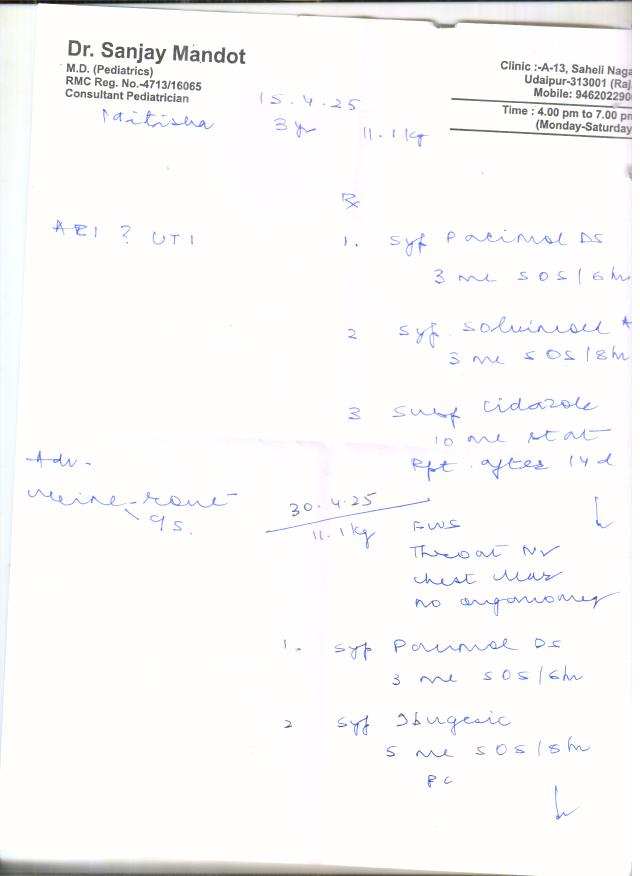 Dr. Sanjay Mandot
M.D. (Pediatrics)
RMC Reg. No.-4713/16065
Consultant Pediatrician
Clinic :-A-13, Saheli Naga
Udaipur-313001 (Raj.
Mobile: 9462022900
Time : 4.00 pm to 7.00 pm
(Monday-Saturday
15.4.25
3 yr 11.1 kg
Rx
? UTI
1. Syp DS
3 ml SOS/6hr
2 Syp
3 ml SOS/8hr
3 Cidazole
10 ml stat
Rpt. after 14 d
Adv -
30.4.25
11.1 kg
Throat
chest
no
1. Syp DS
3 ml SOS/6hr
2 Syp Ibugesic
5 ml SOS/8hr
PC